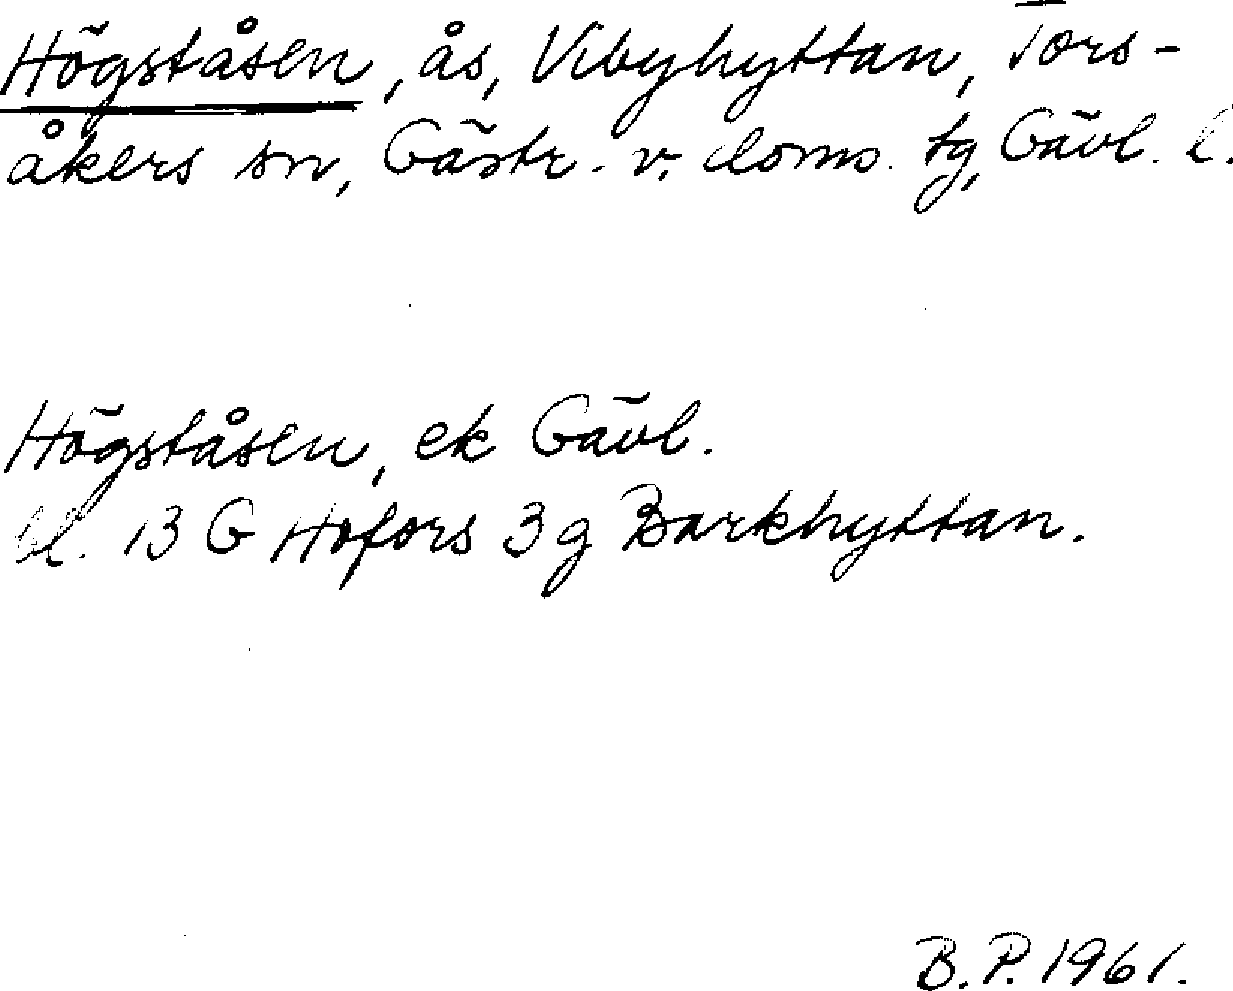 Högståsen, ås, Vibyhyttan, Tors-
åkers sn, Gästr. v. doms. tg, Gävl. l.
Högståsen, ek Gävl.
bl. 13 G Hofors 3 g Barkhyttan.
B. P. 1961.